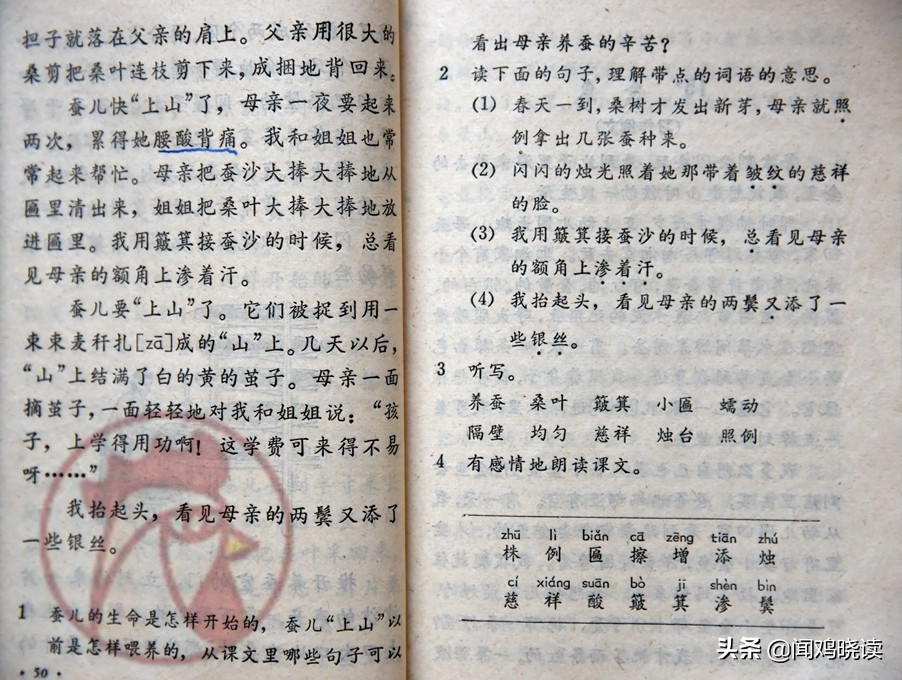 担子就落在父亲的肩上。父亲用很大的
桑剪把桑叶连枝剪下来，成捆地背回来。
蚕儿快“上山”了，母亲一夜要起来
两次，累得她腰酸背痛。我和姐姐也常
常起来帮忙。母亲把蚕沙大捧大捧地从
匾里清出来，姐姐把桑叶大捧大捧地放
进匾里。我用簸箕接蚕沙的时候，总看
见母亲的额角上渗着汗。
蚕儿要“上山”了。它们被捉到用一
束束麦秆扎[zā]成的“山”上。几天以后，
“山”上结满了白的黄的茧子。母亲一面
摘茧子，一面轻轻地对我和姐姐说：“孩
子，上学得用功啊！这学费可来得不易
呀……”
我抬起头，看见母亲的两鬓又添了
一些银丝。
1 蚕儿的生命是怎样开始的，蚕儿“上山”以
前是怎样喂养的，从课文里哪些句子可以
·50·
看出母亲养蚕的辛苦？
2 读下面的句子，理解带点的词语的意思。
(1) 春天一到，桑树才发出新芽，母亲就照
例拿出几张蚕种来。
(2) 闪闪的烛光照着她那带着皱纹的慈祥
的脸。
(3) 我用簸箕接蚕沙的时候，总看见母亲
的额角上渗着汗。
(4) 我抬起头，看见母亲的两鬓又添了一
些银丝。
3 听写。
养蚕 桑叶 簸箕 小匾 蠕动
隔壁 均匀 慈祥 烛台 照例
4 有感情地朗读课文。
zhū lì biǎn cā zēng tiān zhú
株 例 匾 擦 增 添 烛
cí xiáng suān bò ji shèn bìn
慈 祥 酸 簸 箕 渗 鬓
头条 @闻鸡晓读